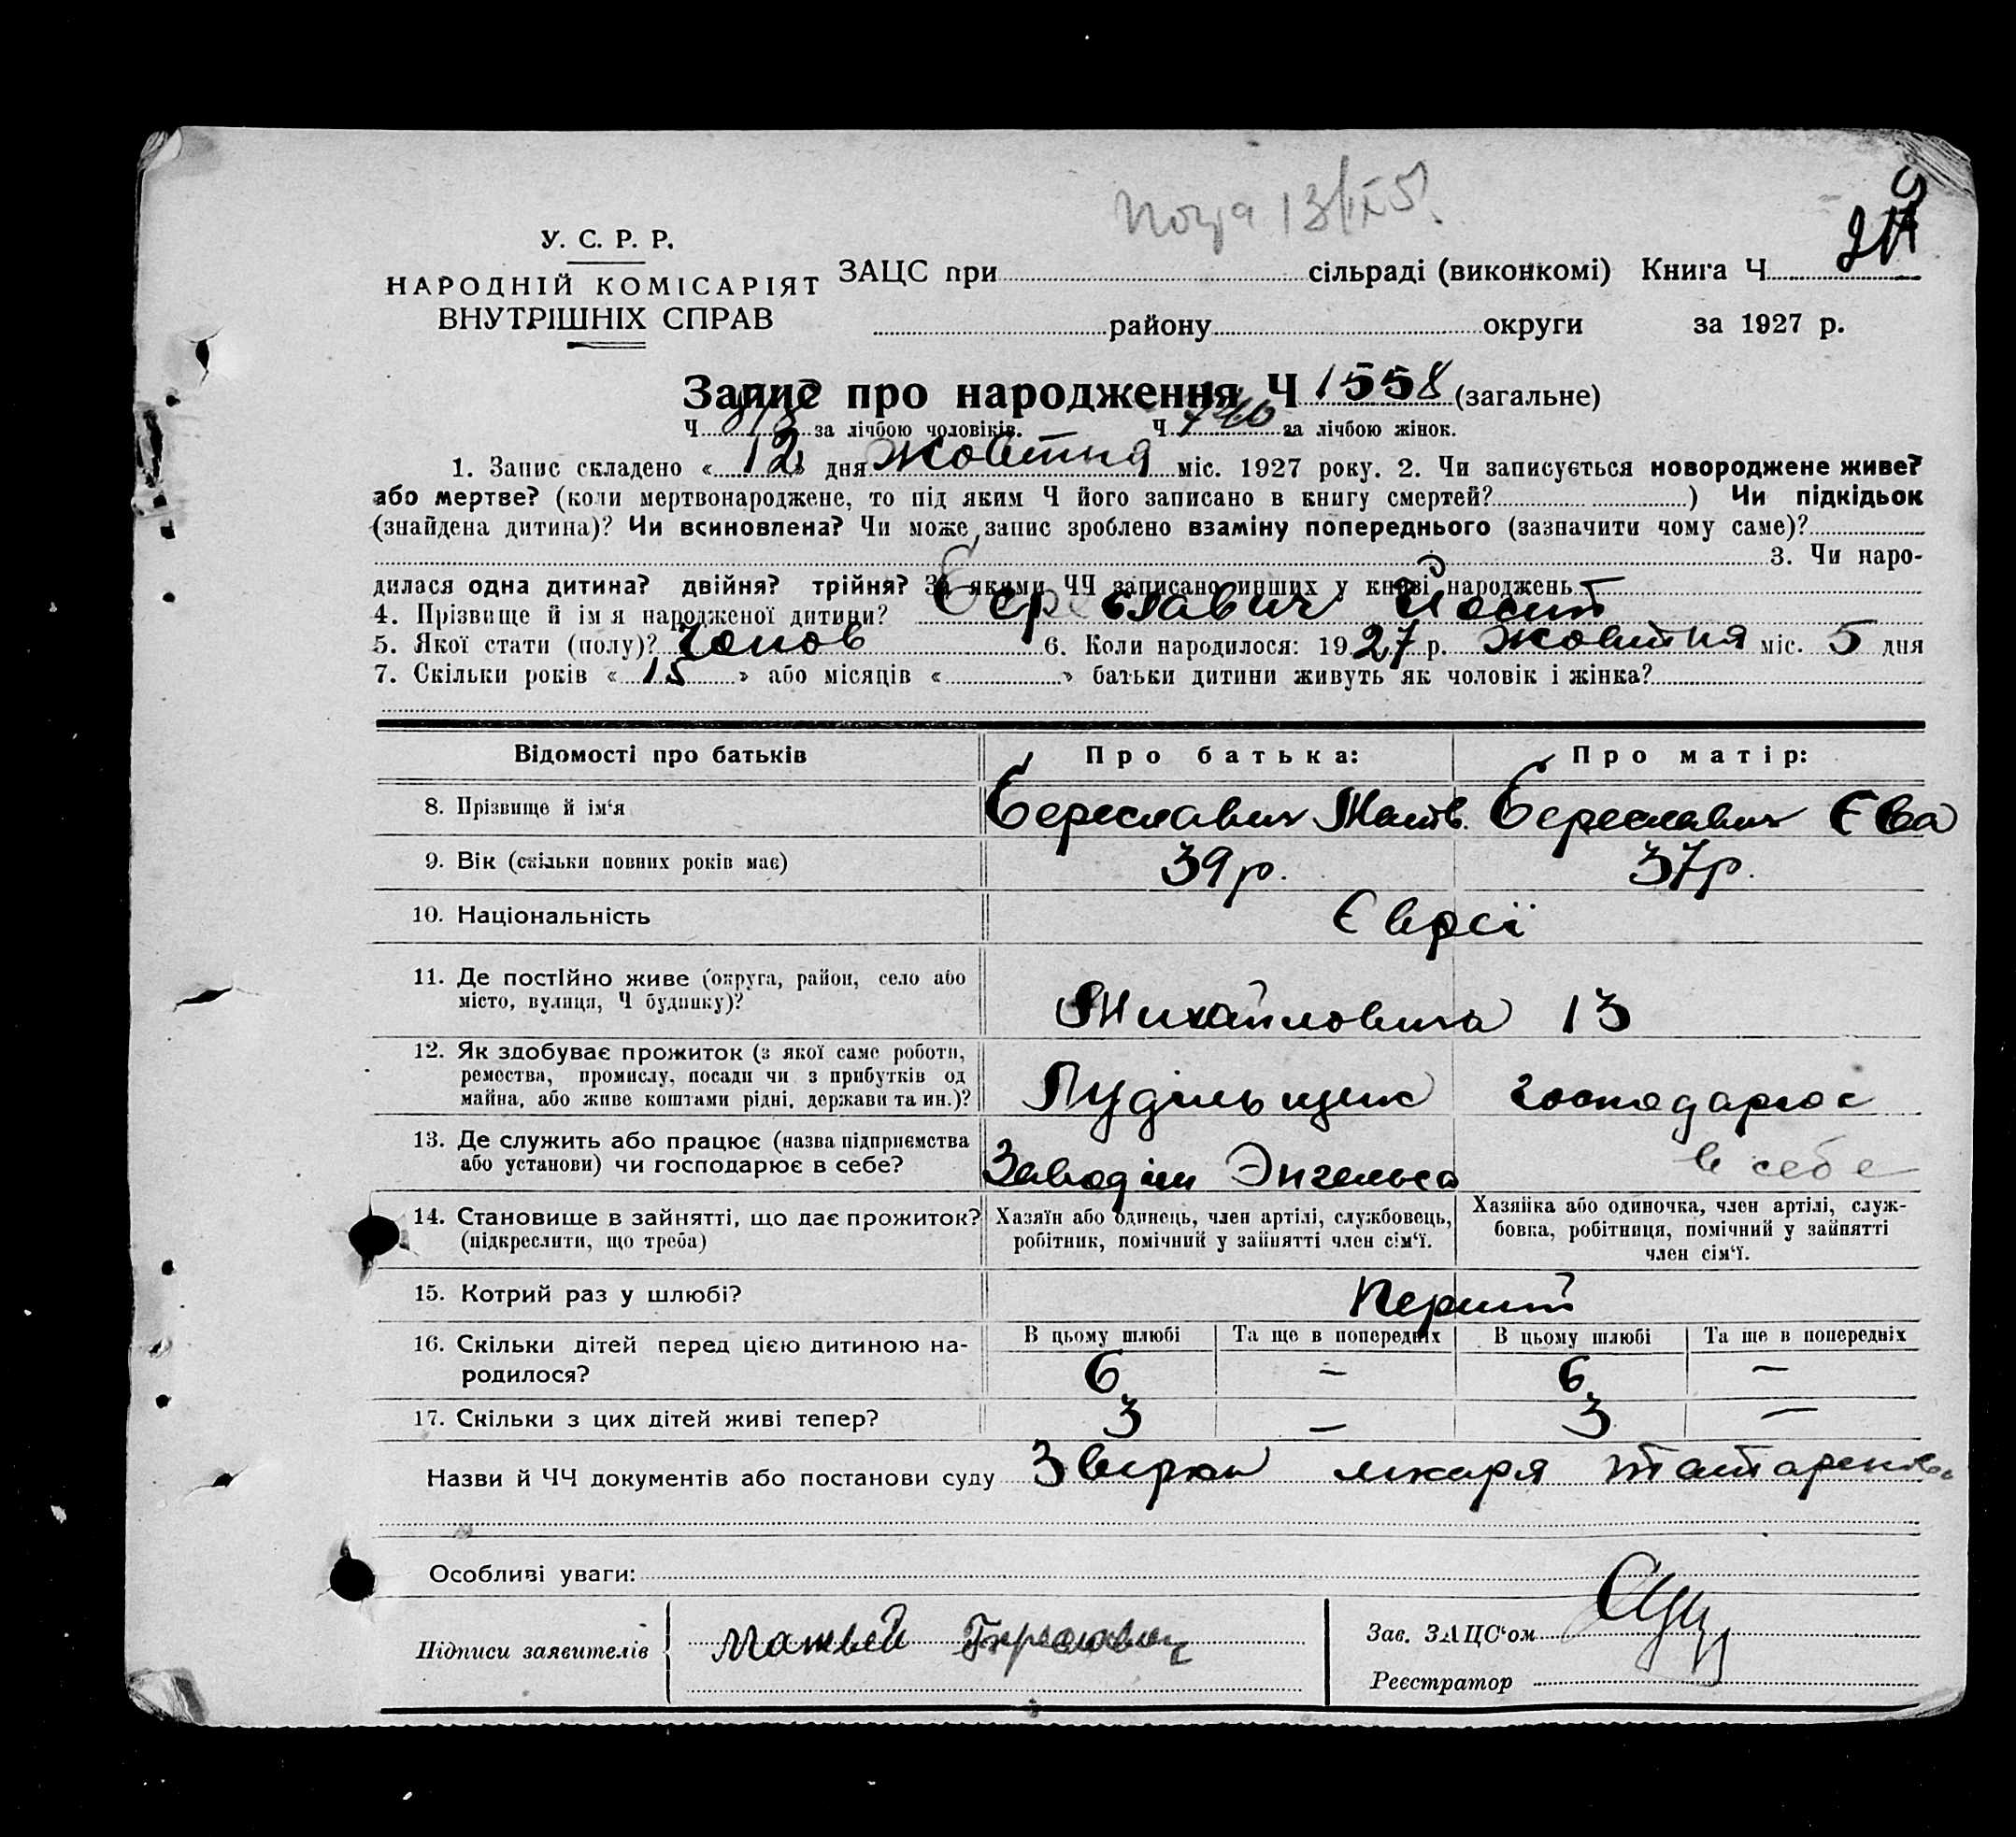 У. С. Р. Р.
НАРОДНІЙ КОМІСАРІЯТ
ВНУТРІШНІХ СПРАВ
ЗАЦС при сільраді (виконкомі) Книга Ч
району округи за 1927 р.
Запис про народження Ч 1558 (загальне)
Ч 818 за лічбою чоловіків. Ч 740 за лічбою жінок.
1. Запис складено « 12 » дня жовтня міс. 1927 року. 2. Чи записується новороджене живе?
або мертве? (коли мертвонароджене, то під яким Ч його записано в книгу смертей? ) Чи підкідьок
(знайдена дитина)? Чи всиновлена? Чи може запис зроблено взаміну попереднього (зазначити чому саме)?
3. Чи наро-
дилася одна дитина? двійня? трійня? За якими ЧЧ записано инших у книзі народжень
4. Прізвище й ім я народженої дитини? Береславич Йосип
5. Якої стати (полу)? чолов 6. Коли народилося: 1927 р. жовтня міс. 5 дня
7. Скільки років « 15 » або місяців « » батьки дитини живуть як чоловік і жінка?
Відомості про батьків Про батька: Про матір:
8. Прізвище й ім'я Береславич Матв. Береславич Єва
9. Вік (скільки повних років має) 39 р. 37 р.
10. Національність Євреї
11. Де постійно живе (округа, район, село або
місто, вулиця, Ч будинку)? Михайловича 13
12. Як здобуває прожиток (з якої саме роботи,
ремества, промислу, посади чи з прибутків од
майна, або живе коштами рідні, держави та ин.)? Лудільщик господарює
13. Де служить або працює (назва підприємства
або установи) чи господарює в себе? Завод ім Энгельса в себе
14. Становище в зайнятті, що дає прожиток?
(підкреслити, що треба)
Хазяїн або одинець, член артілі, службовець,
робітник, помічний у зайнятті член сім'ї.
Хазяйка або одиночка, член артілі, служ-
бовка, робітниця, помічний у зайнятті
член сім'ї.
15. Котрий раз у шлюбі? Перший
16. Скільки дітей перед цією дитиною на-
родилося?
В цьому шлюбі Та ще в попередніх В цьому шлюбі Та ще в попередніх
6 — 6 —
17. Скільки з цих дітей живі тепер? 3 — 3 —
Назви й ЧЧ документів або постанови суду лікаря
Особливі уваги:
Підписи заявителів Матвей Береславич
Зав. ЗАЦС'ом
Реєстратор